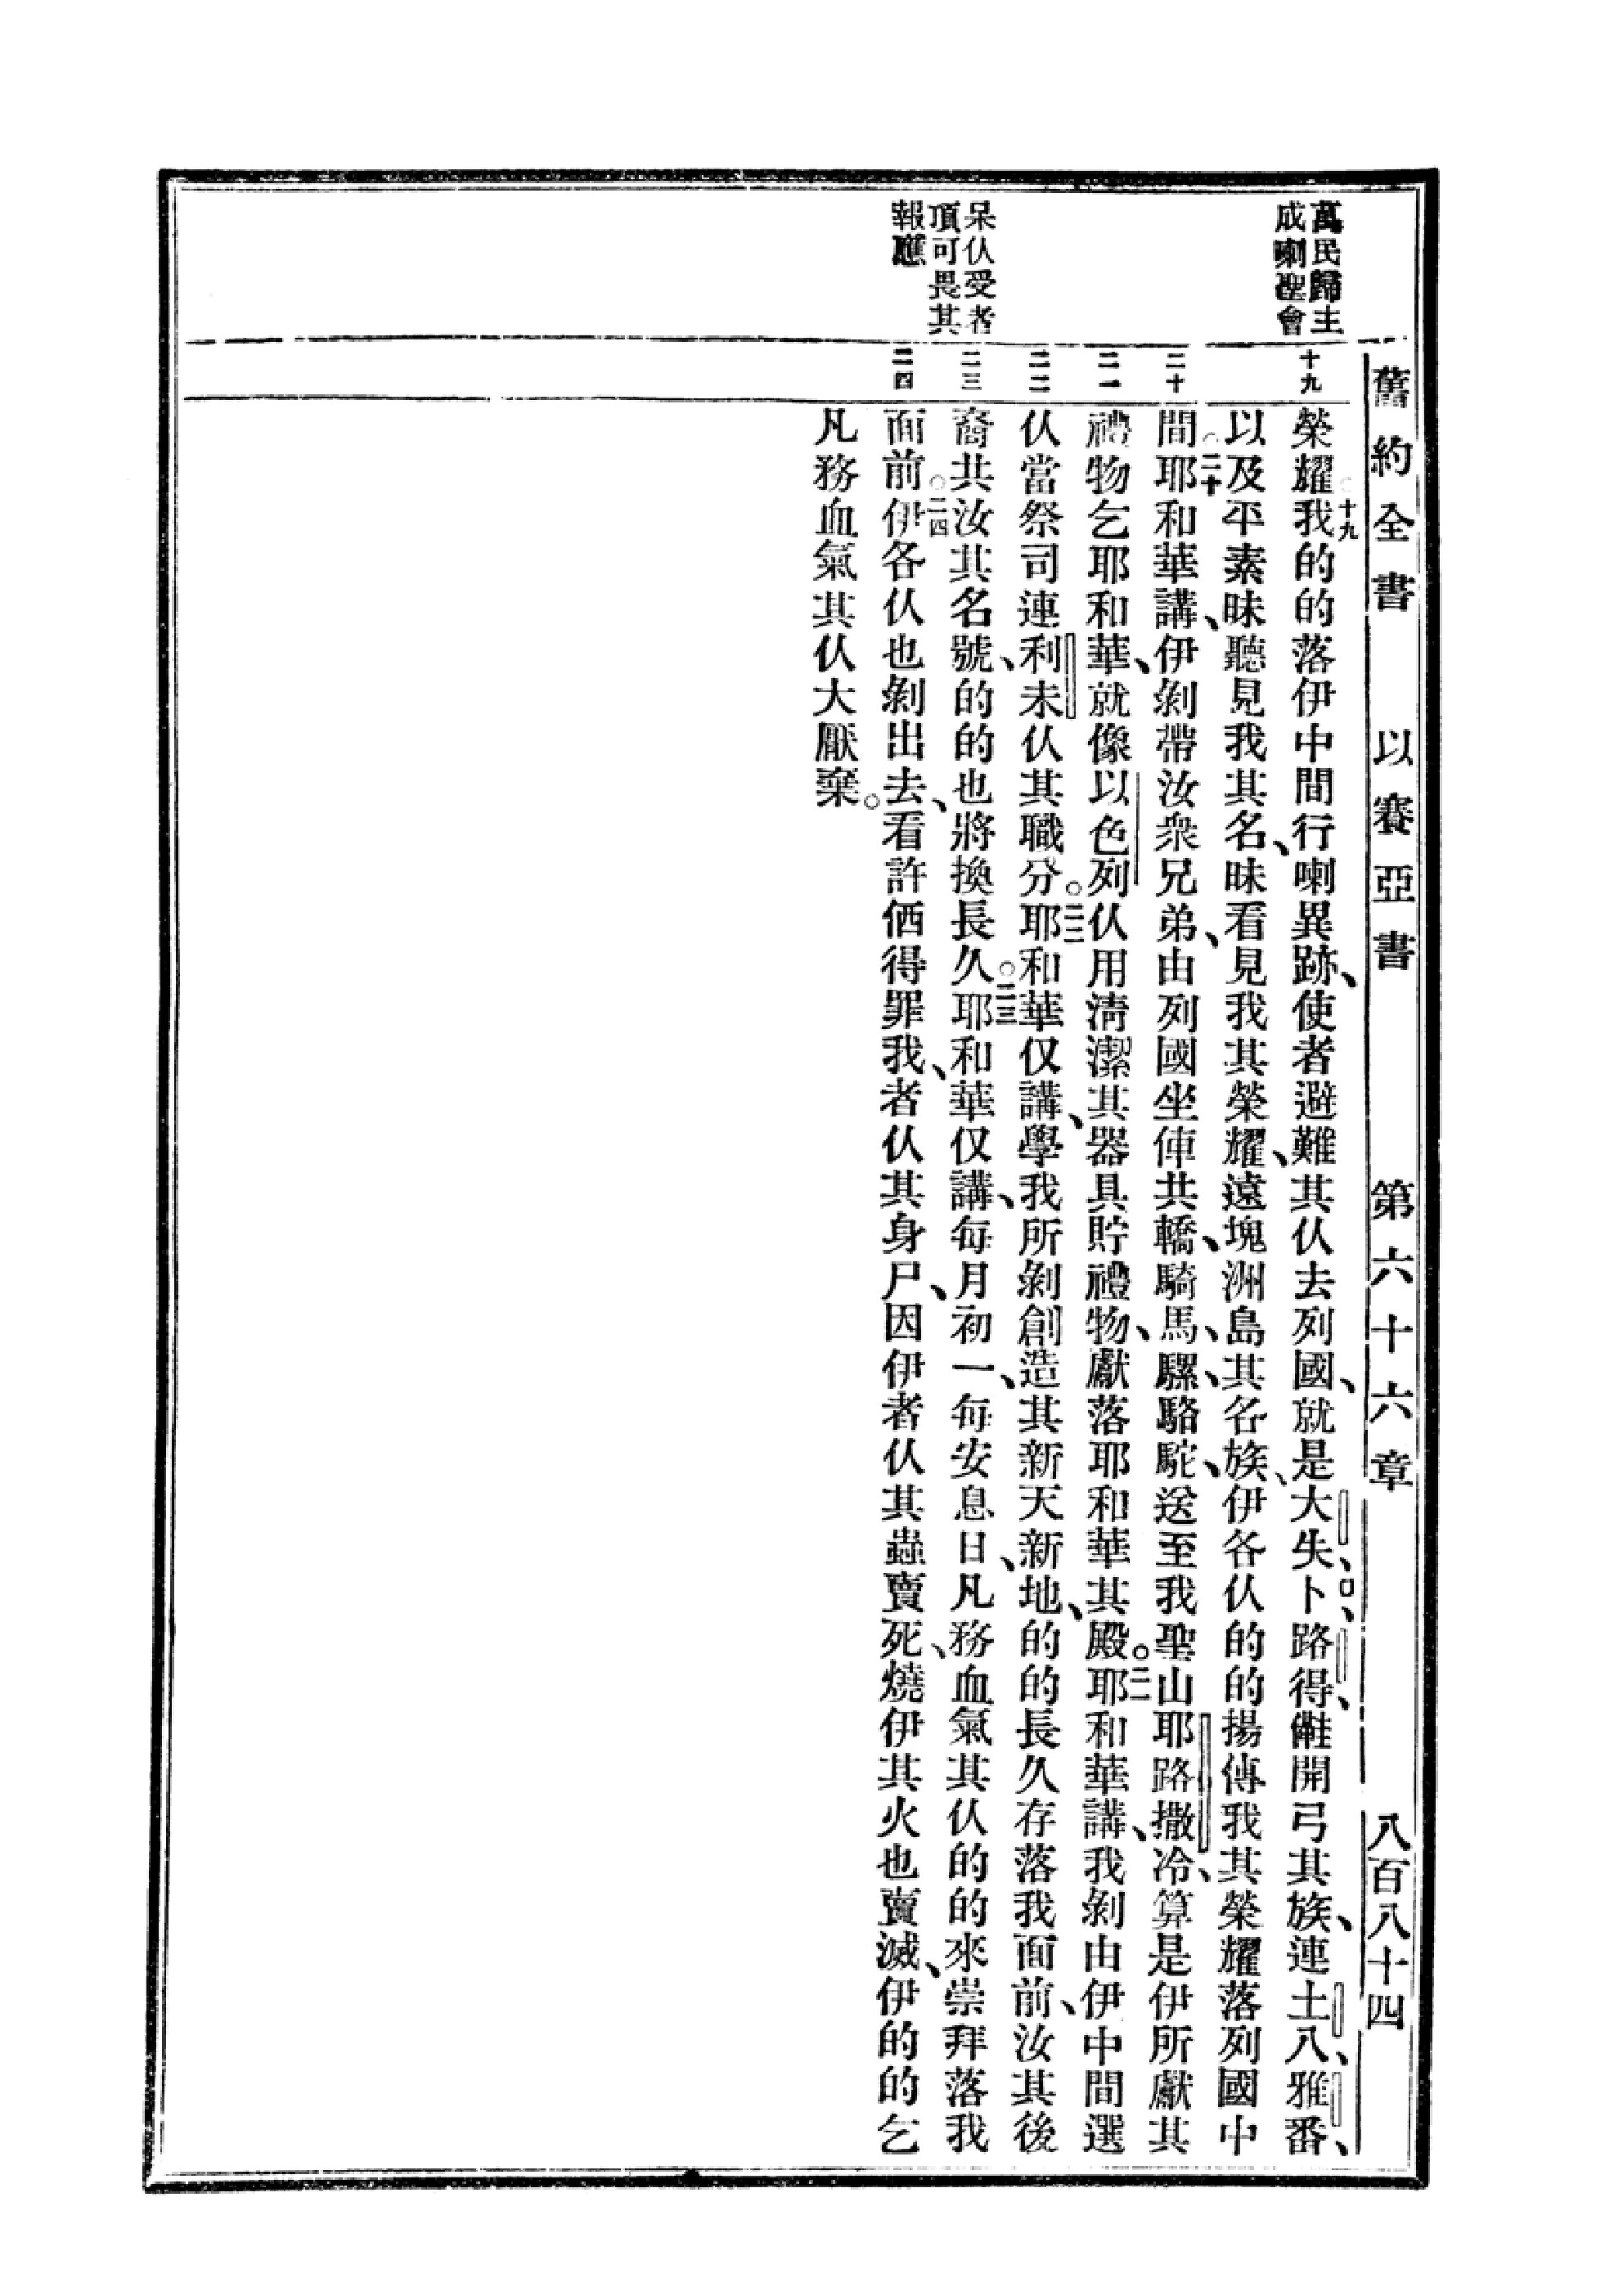 舊約全書 以賽亞書 第六十六章 八百八十四
萬民歸主
成喇聖會
十九
二十
二一
二二
呆伙受者
頂可畏其
報應
二三
二四
榮耀○十九我的的落伊中間行喇異跡、使者避難其伙去列國、就是大失、卜、路得、慣開弓其族、連土八、雅番、
以及平素昧聽見我其名、昧看見我其榮耀、遠塊洲島其名族、伊各伙的的揚傳我其榮耀落列國中
間○二十耶和華講、伊剝帶汝衆兄弟、由列國坐俥共轎、騎馬、騾、駱駝、送至我聖山耶路撒冷、算是伊所獻其
禮物乞耶和華、就像以色列伙用淸潔其器具貯禮物、獻落耶和華其殿。二一耶和華講、我剝由伊中間選
伙當祭司連利未伙其職分。二二耶和華仅講、學我所剝創造其新天新地、的的長久存落我面前、汝其後
裔共汝其名號、的的也將換長久○二三耶和華仅講、每月初一、每安息日、凡務血氣其伙的的來崇拜落我
面前○二四伊各伙也剝出去、看許価得罪我、者伙其身尸、因伊者伙其蟲賣死、燒伊其火也賣滅、伊的的乞
凡務血氣其伙大厭棄。